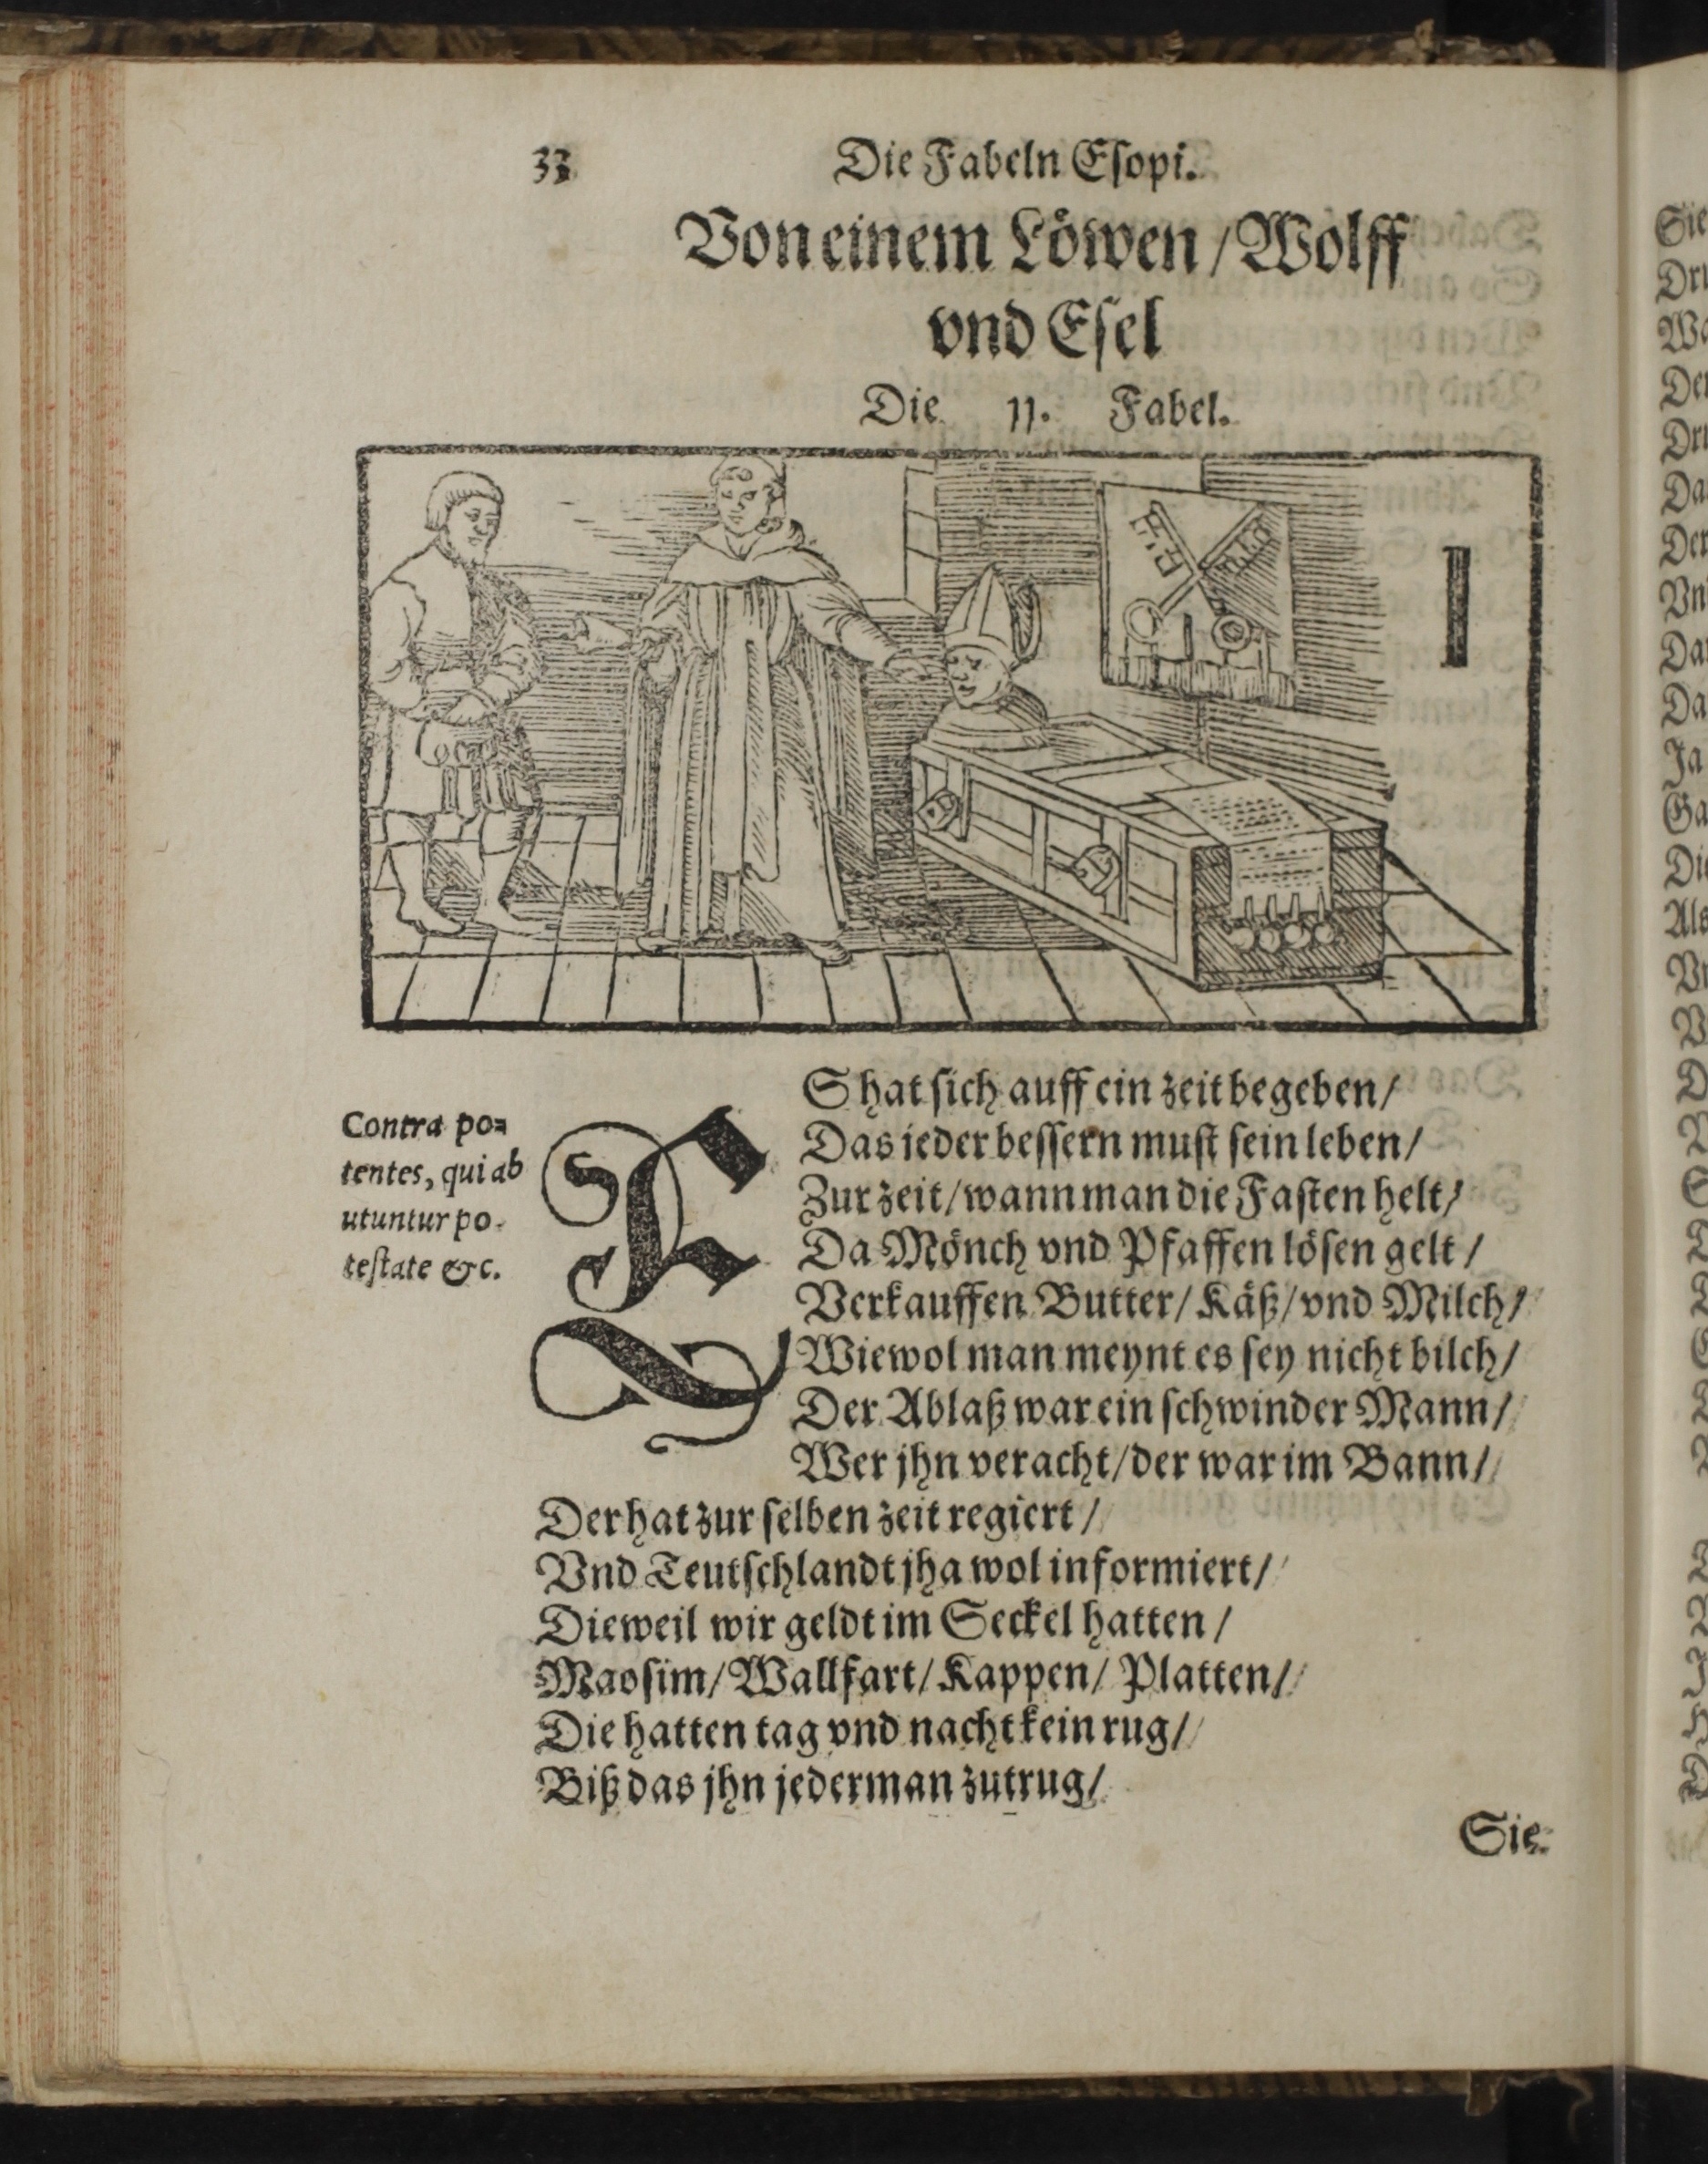 33
Die Fabeln Eſopi.
Von einem Löwen / Wolff
vnd Eſel
Die 11. Fabel.
Contra po=
tentes, qui ab
utuntur po-
teſtate &c.
ES hat ſich auff ein zeit begeben /
Das jeder beſſern muſt ſein leben /
Zur zeit / wann man die Faſten helt /
Da Mönch vnd Pfaffen löſen gelt /
Verkauffen Butter / Käß / vnd Milch /
Wiewol man meynt es ſey nicht bilch /
Der Ablaß war ein ſchwinder Mann /
Wer jhn veracht / der war im Bann /
Der hat zur ſelben zeit regiert /
Vnd Teutſchlandt jha wol informiert /
Dieweil wir geldt im Seckel hatten /
Maoſim / Wallfart / Kappen / Platten /
Die hatten tag vnd nacht kein rug /
Biß das jhn jederman zutrug /
Sie